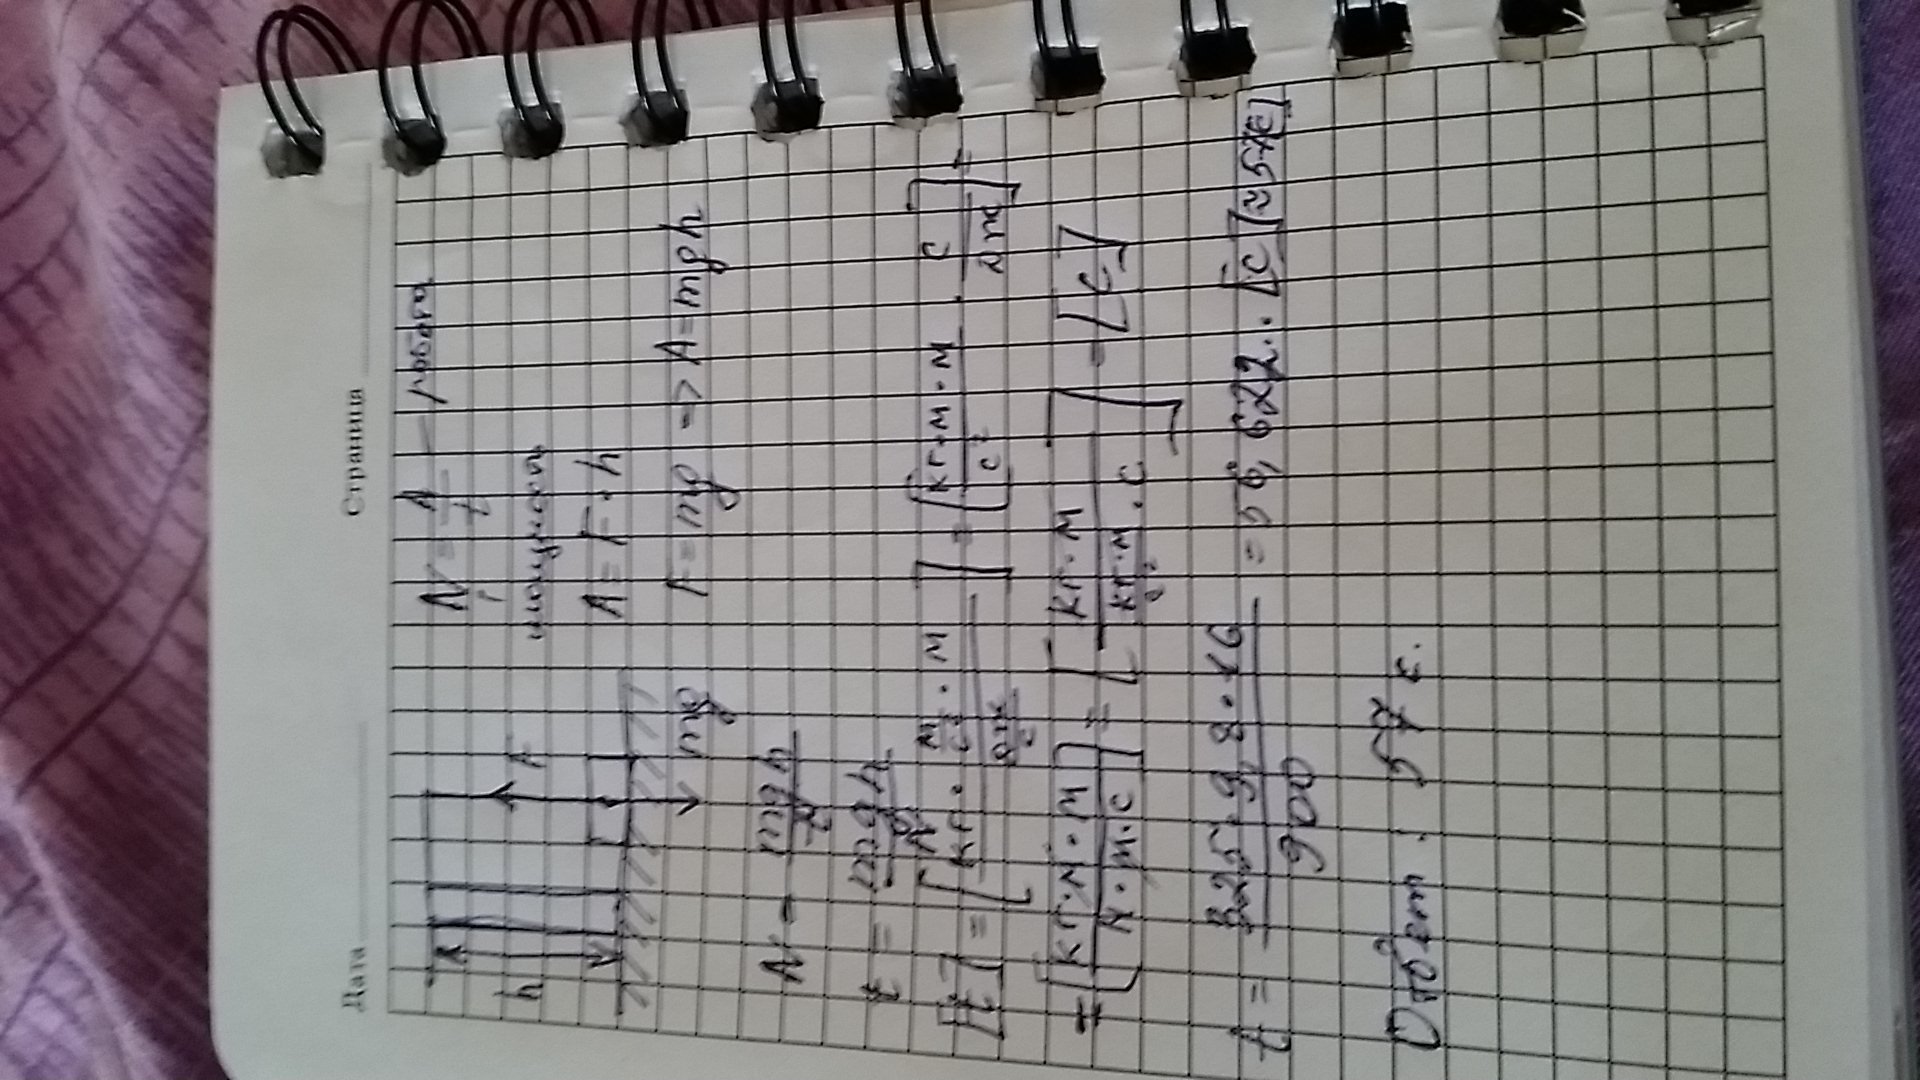 Дата Страница
N = A/t — работа
мощность
A = F · h
F = mg => A = mgh
h F
mg
N = mgh/t
t = mgh/N
[t] = [кг · м/с² · м / Дж/с] = [кг·м·м/с² · с/Дж] =
= [кг·м·м/Н·м·с] = [кг·м / кг·м/с² · с] = [с]
t = 325·9,8·16/900 = 56,622.. [с] [≈57с]
Ответ: 57 с.